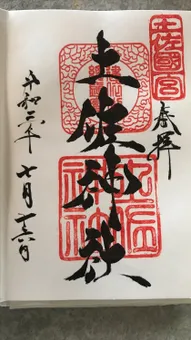 土佐國一宮
奉拝
土佐神社
土佐神社
令和二年
七月十六日